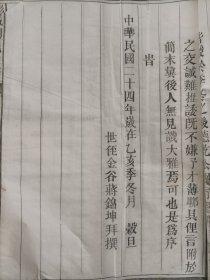 之交誠難推諉旣不嫌予才薄聊具俚言附於
簡末冀後人無見譏大雅焉可也是為序
旹
中華民國二十四年歲在乙亥季冬月 穀旦
世侄金谷蔣錦坤拜撰